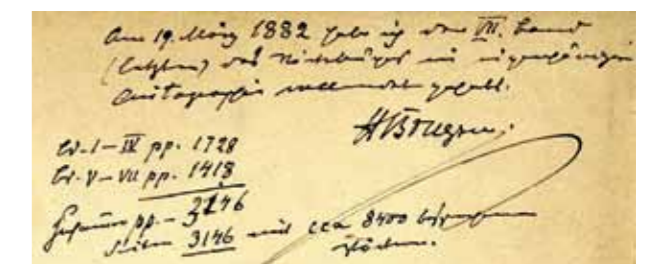 Am 19. März 1882 habe ich den VII. Band
(letzten) des Wörterbuches in eigenhändiger
Autographie vollendet gehabt.
HBrugsch.
Bd. I–IV pp. 1728
Bd. V–VII pp. 1418
Zusammen pp. – 3146
Seiten 3146 mit cca 8400